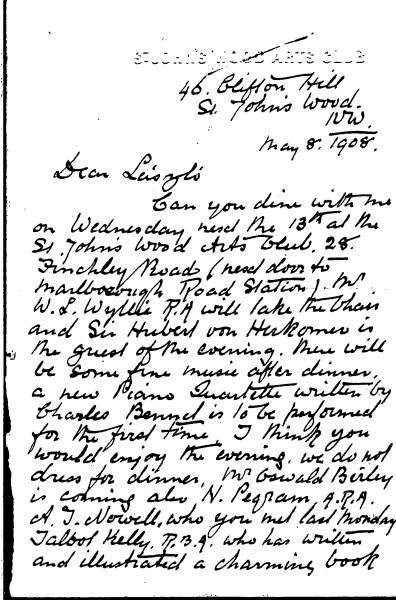 ST JOHN'S WOOD ARTS CLUB
46. Clifton Hill
St. John's Wood.
NW.
May 8. 1908.
Dear László
Can you dine with me
on Wednesday next the 13th at the
St. John's Wood Arts Club, 28.
Finchley Road (next door to
Marlborough Road Station). Mr
W. L. Wyllie R.A will take the Chair
and Sir Hubert von Herkomer is
the guest of the evening. There will
be some fine music after dinner,
a new Piano Quartette written by
Charles is to be performed
for the first time, I think you
would enjoy the evening, we do not
dress for dinner, Mr Oswald Birley
is coming also N. Pegram, A.R.A.
A. T. Nowell, who you met last Monday
Talbot Kelly. R.B.A. who has written
and illustrated a charming book